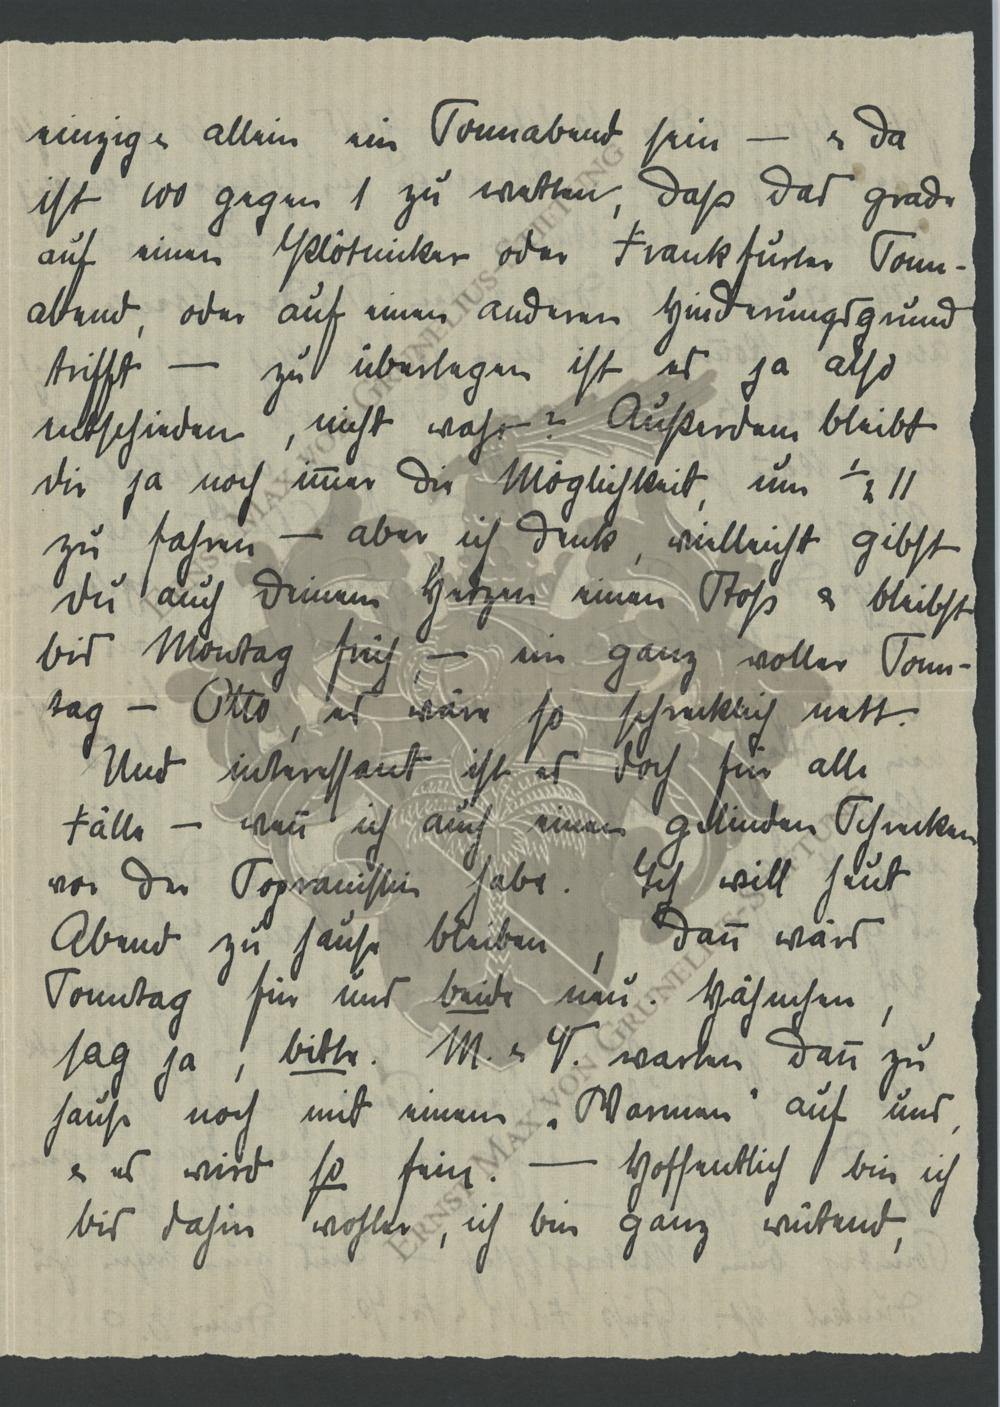 einzig & allein ein Sonnabend sein — & da
ist 100 gegen 1 zu wetten, daß das grade
auf einen Plötniker oder Frankfurter Sonn-
abend, oder auf einen anderen Hinderungsgrund
trifft — zu überlegen ist es ja also
entschieden, nicht wahr? Außerdem bleibt
dir ja noch im̄er die Möglichkeit, um ½ 11
zu fahren — aber ich denk, vielleicht gibst
du auch Deinem Herzen einen Stoß & bleibst
bis Montag früh — ein ganz voller Sonn-
tag — Otto, es wäre so schrecklich nett.
Und interessant ist es doch für alle
Fälle — wen̄ ich auch einen gelinden Schrecken
vor der Sopranistin habe. Ich will heut
Abend zu hause bleiben, dan̄ wärs
Sonntag für uns beide neu.
sag ja, bitte. M. & V. warten dan̄ zu
hause noch mit einem „Warmen" auf uns,
& es wird so fein. — Hoffentlich bin ich
bis dahin wohler, ich bin ganz wütend,
ERNST MAX VON GRUNELIUS-STIFTUNG
ERNST MAX VON GRUNELIUS-STIFTUNG